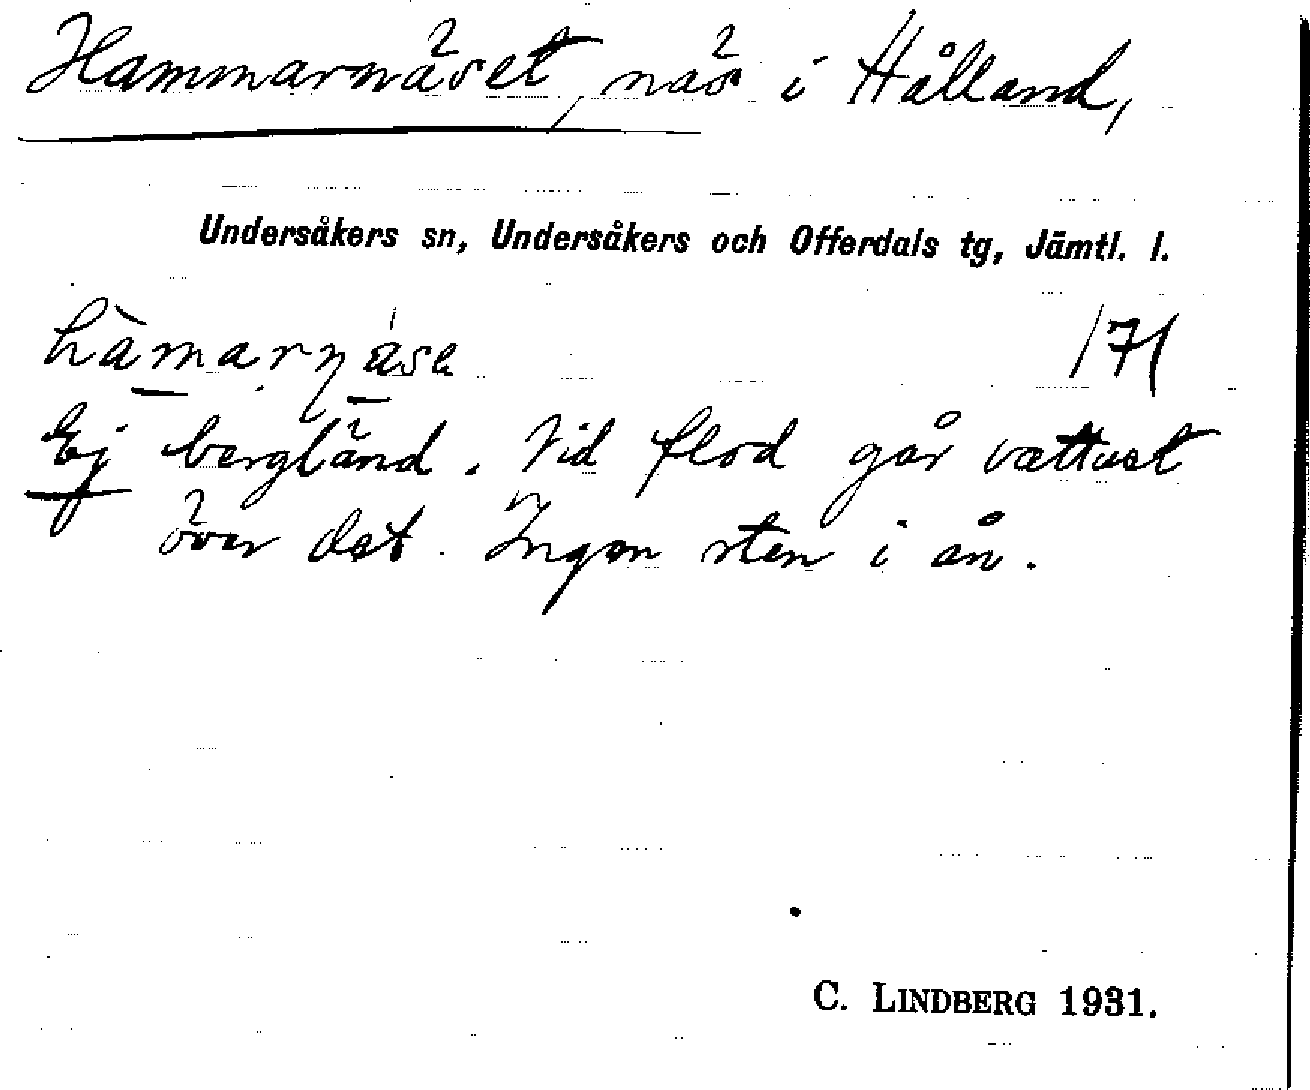 Hammarnäset, näs i Hålland,
Undersåkers sn, Undersåkers och Offerdals tg, Jämtl. l.
hàmarŋása 171
Ej bergländ. Vid flod går vattnet
över det. Ingen sten i ån.
C. LINDBERG 1931.